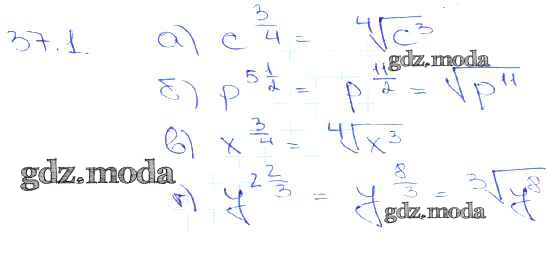 37.1. а) c^{3/4} = \sqrt[4]{c^3}
gdz.moda
б) p^{5 1/2} = p^{11/2} = \sqrt{p^{11}}
в) x^{3/4} = \sqrt[4]{x^3}
gdz.moda
г) y^{2 2/3} = y^{8/3} = \sqrt[3]{y^8}
gdz.moda